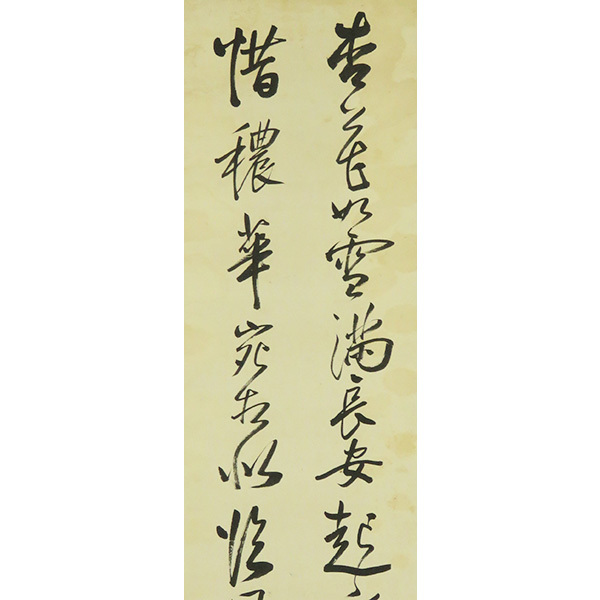 杏花如雪滿長安起
惜穠華宛相似